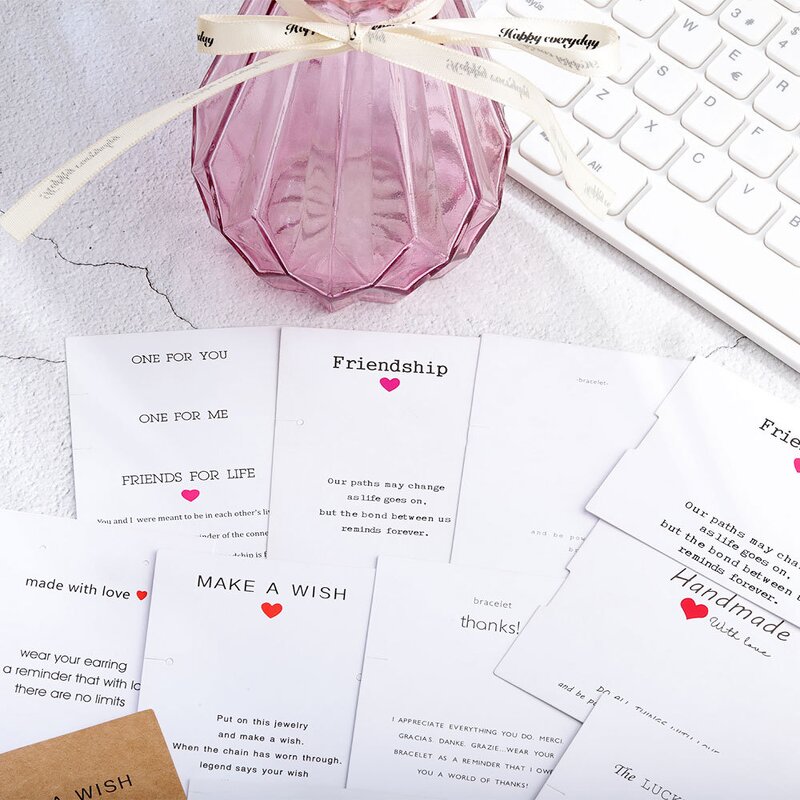 Happy everyday
Happy everyday
ONE FOR YOU
ONE FOR ME
FRIENDS FOR LIFE
You and I were meant to be in each other's
of the
Friendship
Our paths may change
as life goes on,
but the bond between us
reminds forever.
-bracelet-
and be
Our paths may change
as life goes on,
but the bond between us
reminds forever.
made with love
wear your earring
a reminder that with
there are no limits
MAKE A WISH
Put on this jewelry
and make a wish.
When the chain has worn through,
legend says your wish
bracelet
thanks!
I APPRECIATE EVERYTHING YOU DO. MERCI.
GRACIAS. DANKE. GRAZIE...WEAR YOUR
BRACELET AS A REMINDER THAT I OWE
YOU A WORLD OF THANKS!
Handmade
With love
and be
The
A WISH
Alt
3 #
W
E
€
R
S
D
F
Z
X
C
V
B